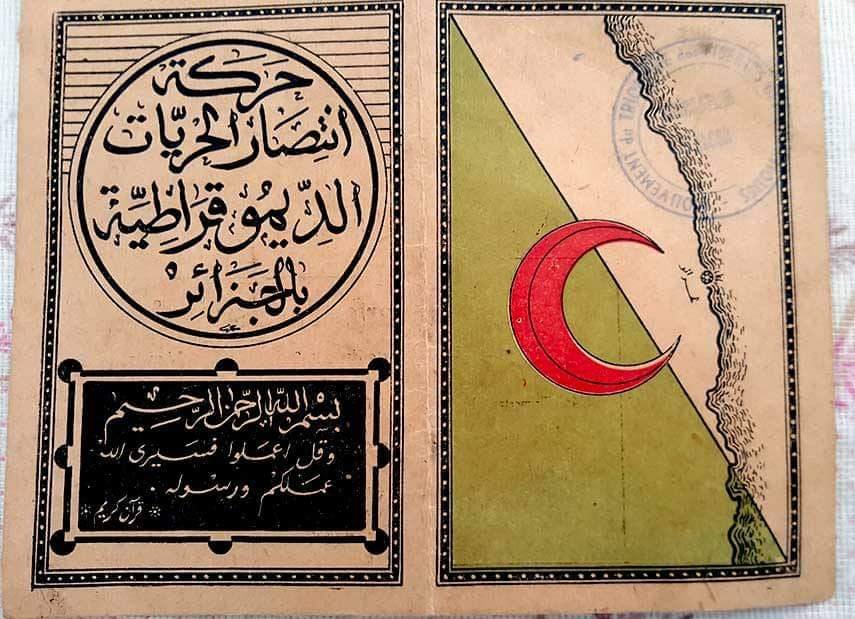 حركة
انتصار الحريّات
الديموقراطيّة
بالجزائر
بسم الله الرحمن الرحيم
وقل اعملوا فسيرى الله
عملكم ورسوله .
* قرآن كريم *
MOUVEMENT du TRIOMPHE des